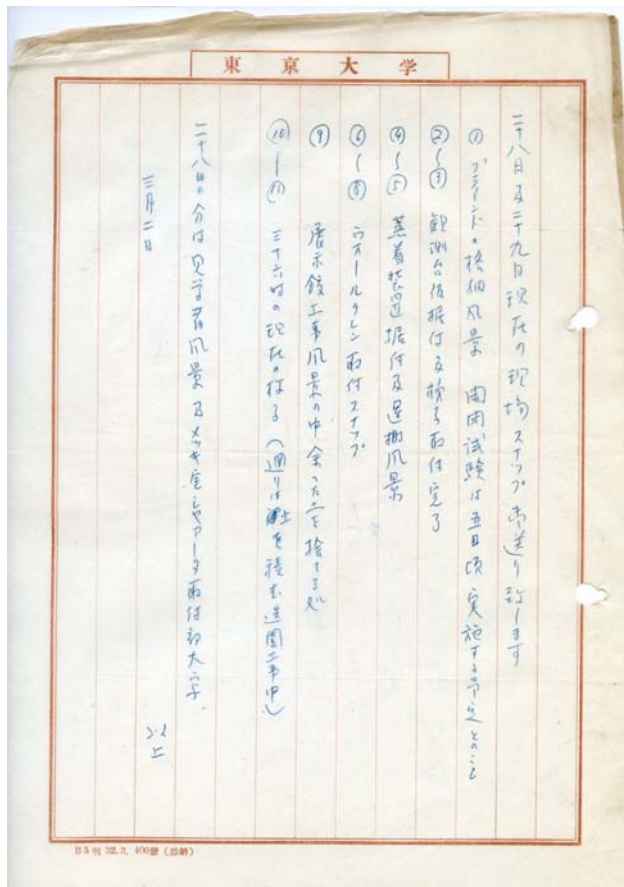 東京大学
二十八日及二十九日現在の現場スナップ御送り致します
① ブラインドの格納風景 開閉試験は五日頃実施する予定とのこと
②〜③ 観測台仮据付及梯子取付完了
④〜⑤ 蒸着装置据付及運搬風景
⑥〜⑧ ウオールクレン取付スナップ
⑨ 展示館工事風景の中余った土を捨てる処
⑩〜⑪ 三十六吋の現在の様子(廻りは土を積み造園工事中)
二十八日の分は見学者風景及メッキ室シヤッター取付部大写
以上
三月二日
B5判 32.2. 400冊